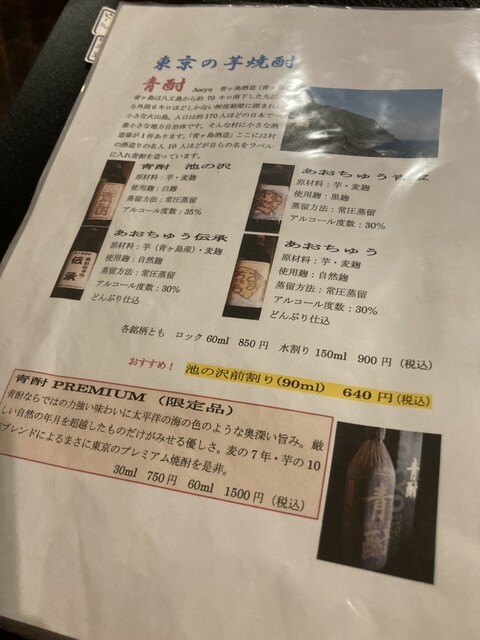 東京の芋焼酎
青酎 Aocyu 青ヶ島酒造（青ヶ
青ヶ島は八丈島から約 70 キロ南下した先に
る外周 6 キロほどしかない断崖絶壁に囲まれ
小さな火山島。人口は約 170 人ほどの日本で
番小さな地方自治体です。そんな村に小さな酒
造場が 1 件あります。「青ヶ島酒造」ここには村
の酒造りの名人 10 人ほどが自らの名をラベル
に入れ青酎を造っています。
青酎 池の沢
原材料：芋・麦麹
使用麹：白麹
蒸留方法：常圧蒸留
アルコール度数：35%
あおちゅう
原材料：芋・麦麹
使用麹：黒麹
蒸留方法：常圧蒸留
アルコール度数：30%
あおちゅう伝承
原材料：芋（青ヶ島産）・麦麹
使用麹：自然麹
蒸留方法：常圧蒸留
アルコール度数：30%
どんぶり仕込
あおちゅう
原材料：芋・麦麹
使用麹：自然麹
蒸留方法：常圧蒸留
アルコール度数：30%
どんぶり仕込
各銘柄とも ロック 60ml 850 円 水割り 150ml 900 円（税込）
おすすめ！ 池の沢前割り(90ml) 640 円(税込)
青酎 PREMIUM （限定品）
青酎ならではの力強い味わいに太平洋の海の色のような奥深い旨み。厳
しい自然の年月を超越したものだけがみせる優しさ。麦の 7 年・芋の 10
ブレンドによるまさに東京のプレミアム焼酎を是非。
30ml 750 円 60ml 1500 円（税込）
青酎
伝承
青酎
青酎